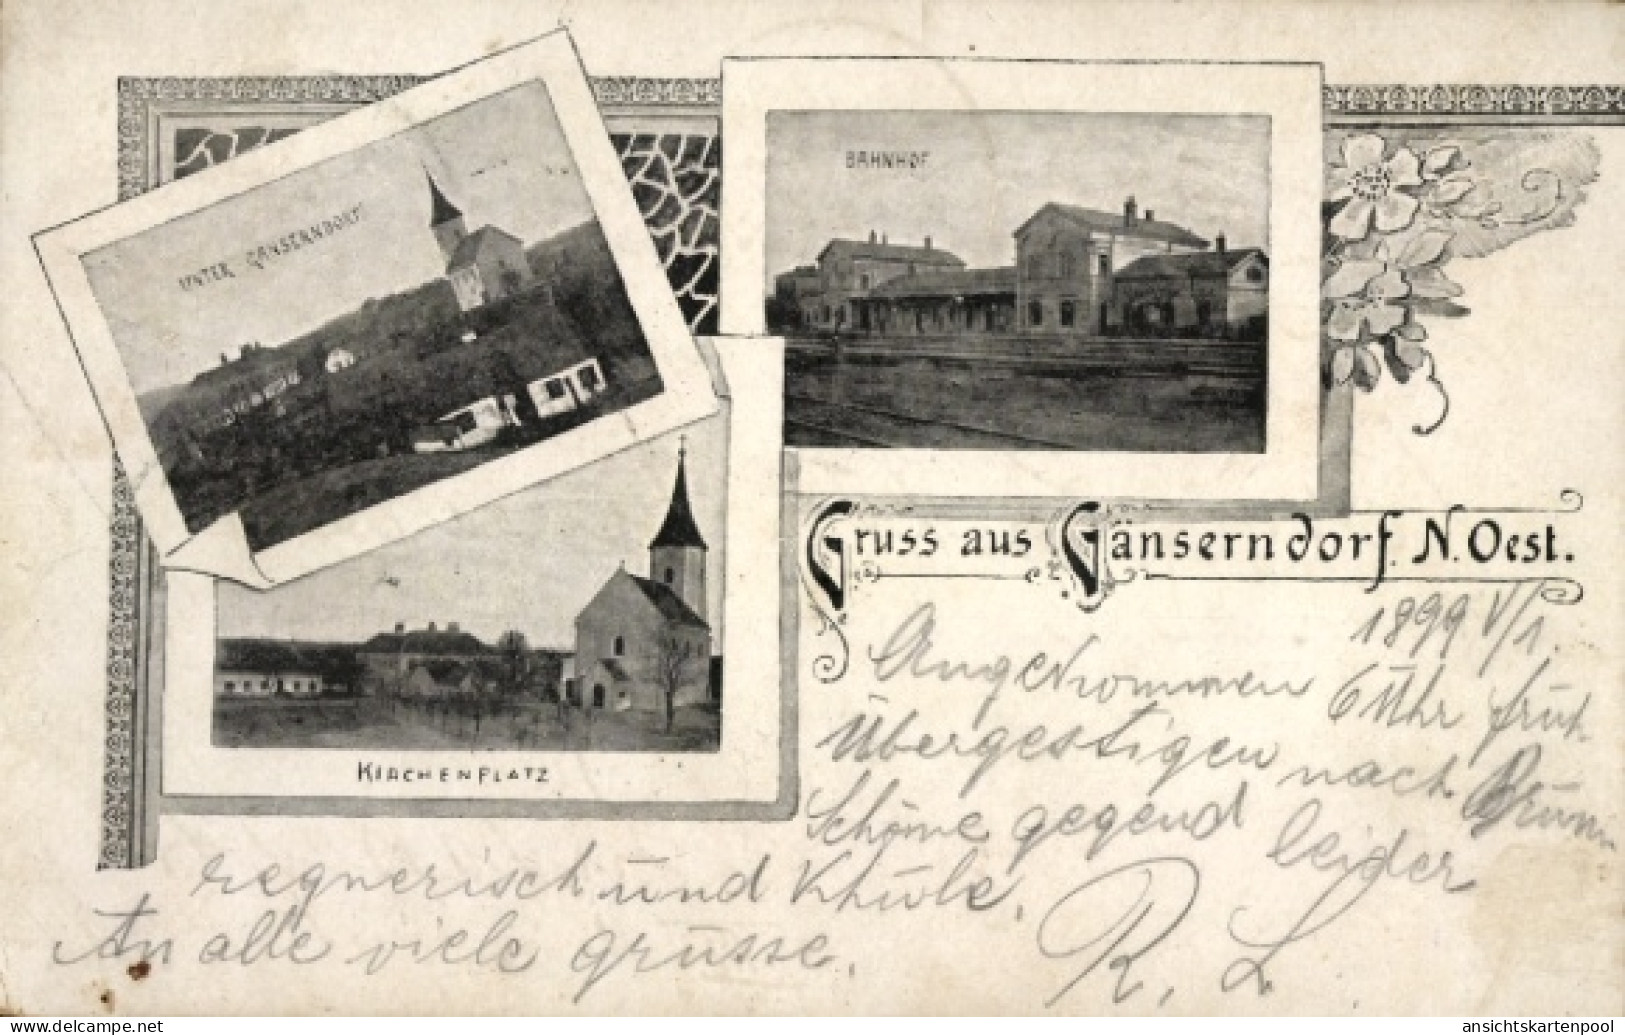 UNTER GÄNSERNDORF
BAHNHOF
KIRCHENPLATZ
Gruss aus Gänserndorf. N. Oest.
1899 V/1.
Angekommen 6 Uhr früh.
Übergestigen nach Brünn
Schöne gegend leider
regnerisch und Khüle.
An alle viele grüsse.
R. L.
www.delcampe.net
ansichtskartenpool